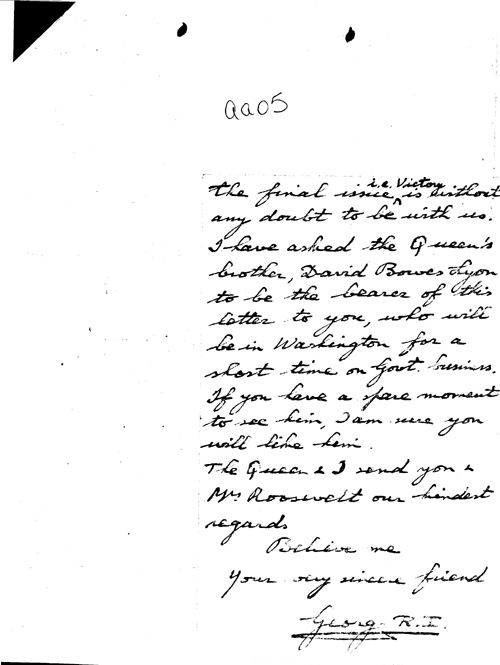 aa05
i.e. Victory
the final issue ^ is without
any doubt to be with us.
I have asked the Queen's
brother, David Bowes Lyon
to be the bearer of this
letter to you, who will
be in Washington for a
short time on Govt. business.
If you have a spare moment
to see him, I am sure you
will like him.
The Queen & I send you &
Mrs Roosevelt our kindest
regards
Believe me
Your very sincere friend
George R.I.